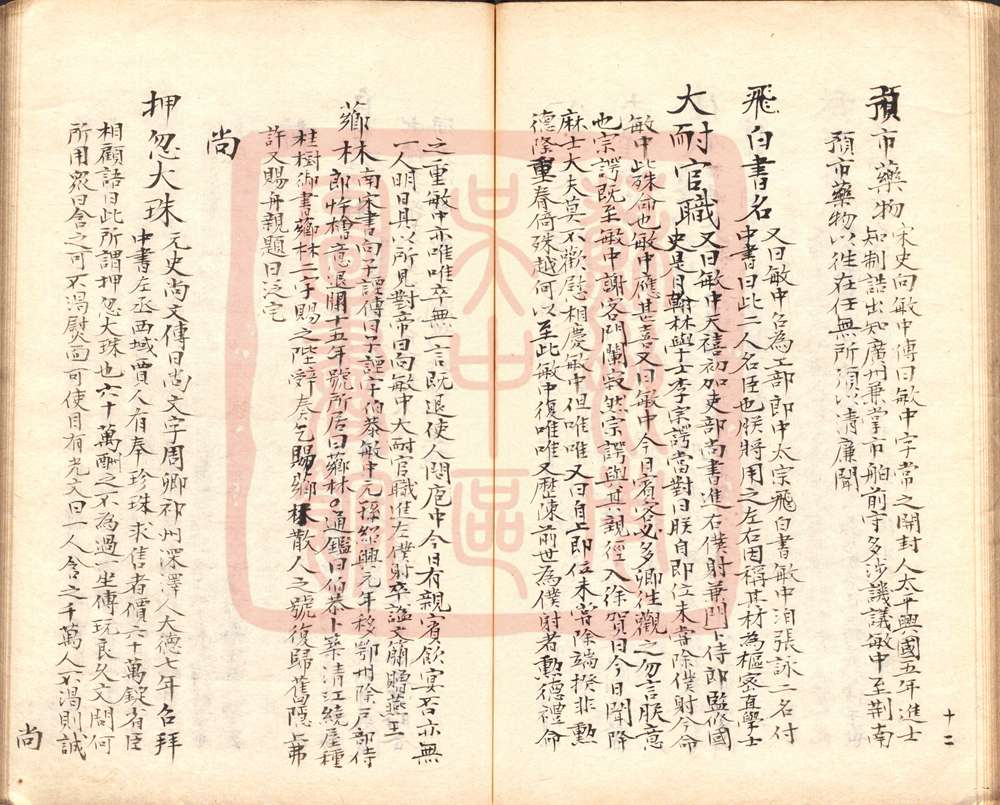 預市藥物 宋史向敏中傳曰敏中字常之開封人太平興國五年進士
知制誥出知廣州兼掌市舶前守多涉譏議敏中至荆南
預市藥物以往在任無所須以清廉聞
飛白書名 又曰敏中名為工部郎中太宗飛白書敏中洎張詠二名付
中書曰此二人名臣也朕將用之左右因稱其材為樞密直學士
大耐官職 又曰敏中天禧初加吏部尚書進右僕射兼門下侍郎監修國
史是日翰林學士李宗諤當對曰朕自即位未嘗除僕射今命
敏中此殊命也敏中應甚喜又曰敏中今日賀客必多卿往觀之勿言朕意
也宗諤既至敏中謝客門闌寂然宗諤與其親徑入徐賀曰今日聞降
麻士大夫莫不歡慰相慶敏中但唯唯又曰自上即位未嘗除端揆非勳
德隆重眷倚殊越何以至此敏中復唯唯又歷陳前世為僕射者勳德禮命
之重敏中亦唯唯卒無一言既退使人問庖中今日有親賓飲宴否亦無
一人明日具以所見對帝曰向敏中大耐官職進左僕射卒謚文簡贈燕王
薌林 南宋書向子諲傳曰子諲字伯恭敏中元孫紹興元年移鄂州除戶部侍
郎忤檜意退閒十五年號所居曰薌林。通鑑曰伯恭卜築清江繞屋種
桂樹御書薌林二字賜之陛辭奏乞賜薌林散人之號復歸舊隱上弗
許又賜舟親題曰泛宅
尚
押忽大珠 元史尚文傳曰尚文字周卿祁州深澤人大德七年召拜
中書左丞西域賈人有奉珍珠求售者價六十萬錠省臣
相顧語曰此所謂押忽大珠也六十萬酬之不為過一坐傳玩良久文問何
所用衆曰含之可不渴熨面可使目有光文曰一人含之千萬人不渴則誠
尚
十二